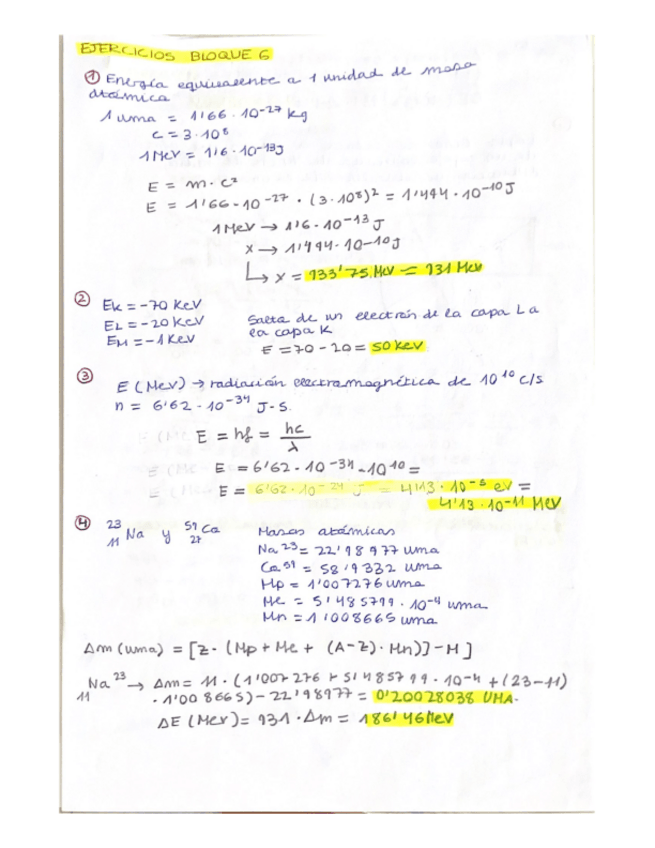 EJERCICIOS BLOQUE 6
① Energía equivalente a 1 unidad de masa
atómica
1 uma = 1'66 · 10-27 kg
c = 3 · 10⁸
1 MeV = 1'6 · 10-13 J
E = m · c²
E = 1'66 · 10-27 · (3 · 10⁸)² = 1'494 · 10-10 J
1 MeV → 1'6 · 10-13 J
x → 1'494 · 10-10 J
↳ x = 933'75 MeV = 931 MeV
② EK = -70 KeV
EL = -20 KeV
EM = -1 KeV
Salta de un electrón de la capa L a
la capa K
E = 70 - 20 = 50 keV
③ E (MeV) → radiación electromagnética de 10¹⁰ c/s
n = 6'62 · 10-34 J-S.
E = hf = hc/λ
E = 6'62 · 10-34 · 10¹⁰ =
E = 6'62 · 10-24 J = 4'13 · 10-5 eV =
4'13 · 10-11 MeV
④ 23 11 Na y 59 27 Co
Masas atómicas
Na 23 = 22'98977 uma
Co 59 = 58'9332 uma
Mp = 1'007276 uma
Me = 5'485799 · 10-4 uma
Mn = 1'008665 uma
Δm (uma) = [Z · (Mp + Me + (A-Z) · Mn)] - M]
Na 23 11 → Δm = 11 · (1'007276 + 5'485799 · 10-4 + (23-11)
· 1'008665) - 22'98977 = 0'20028038 UMA.
ΔE (MeV) = 931 · Δm = 186'46 MeV